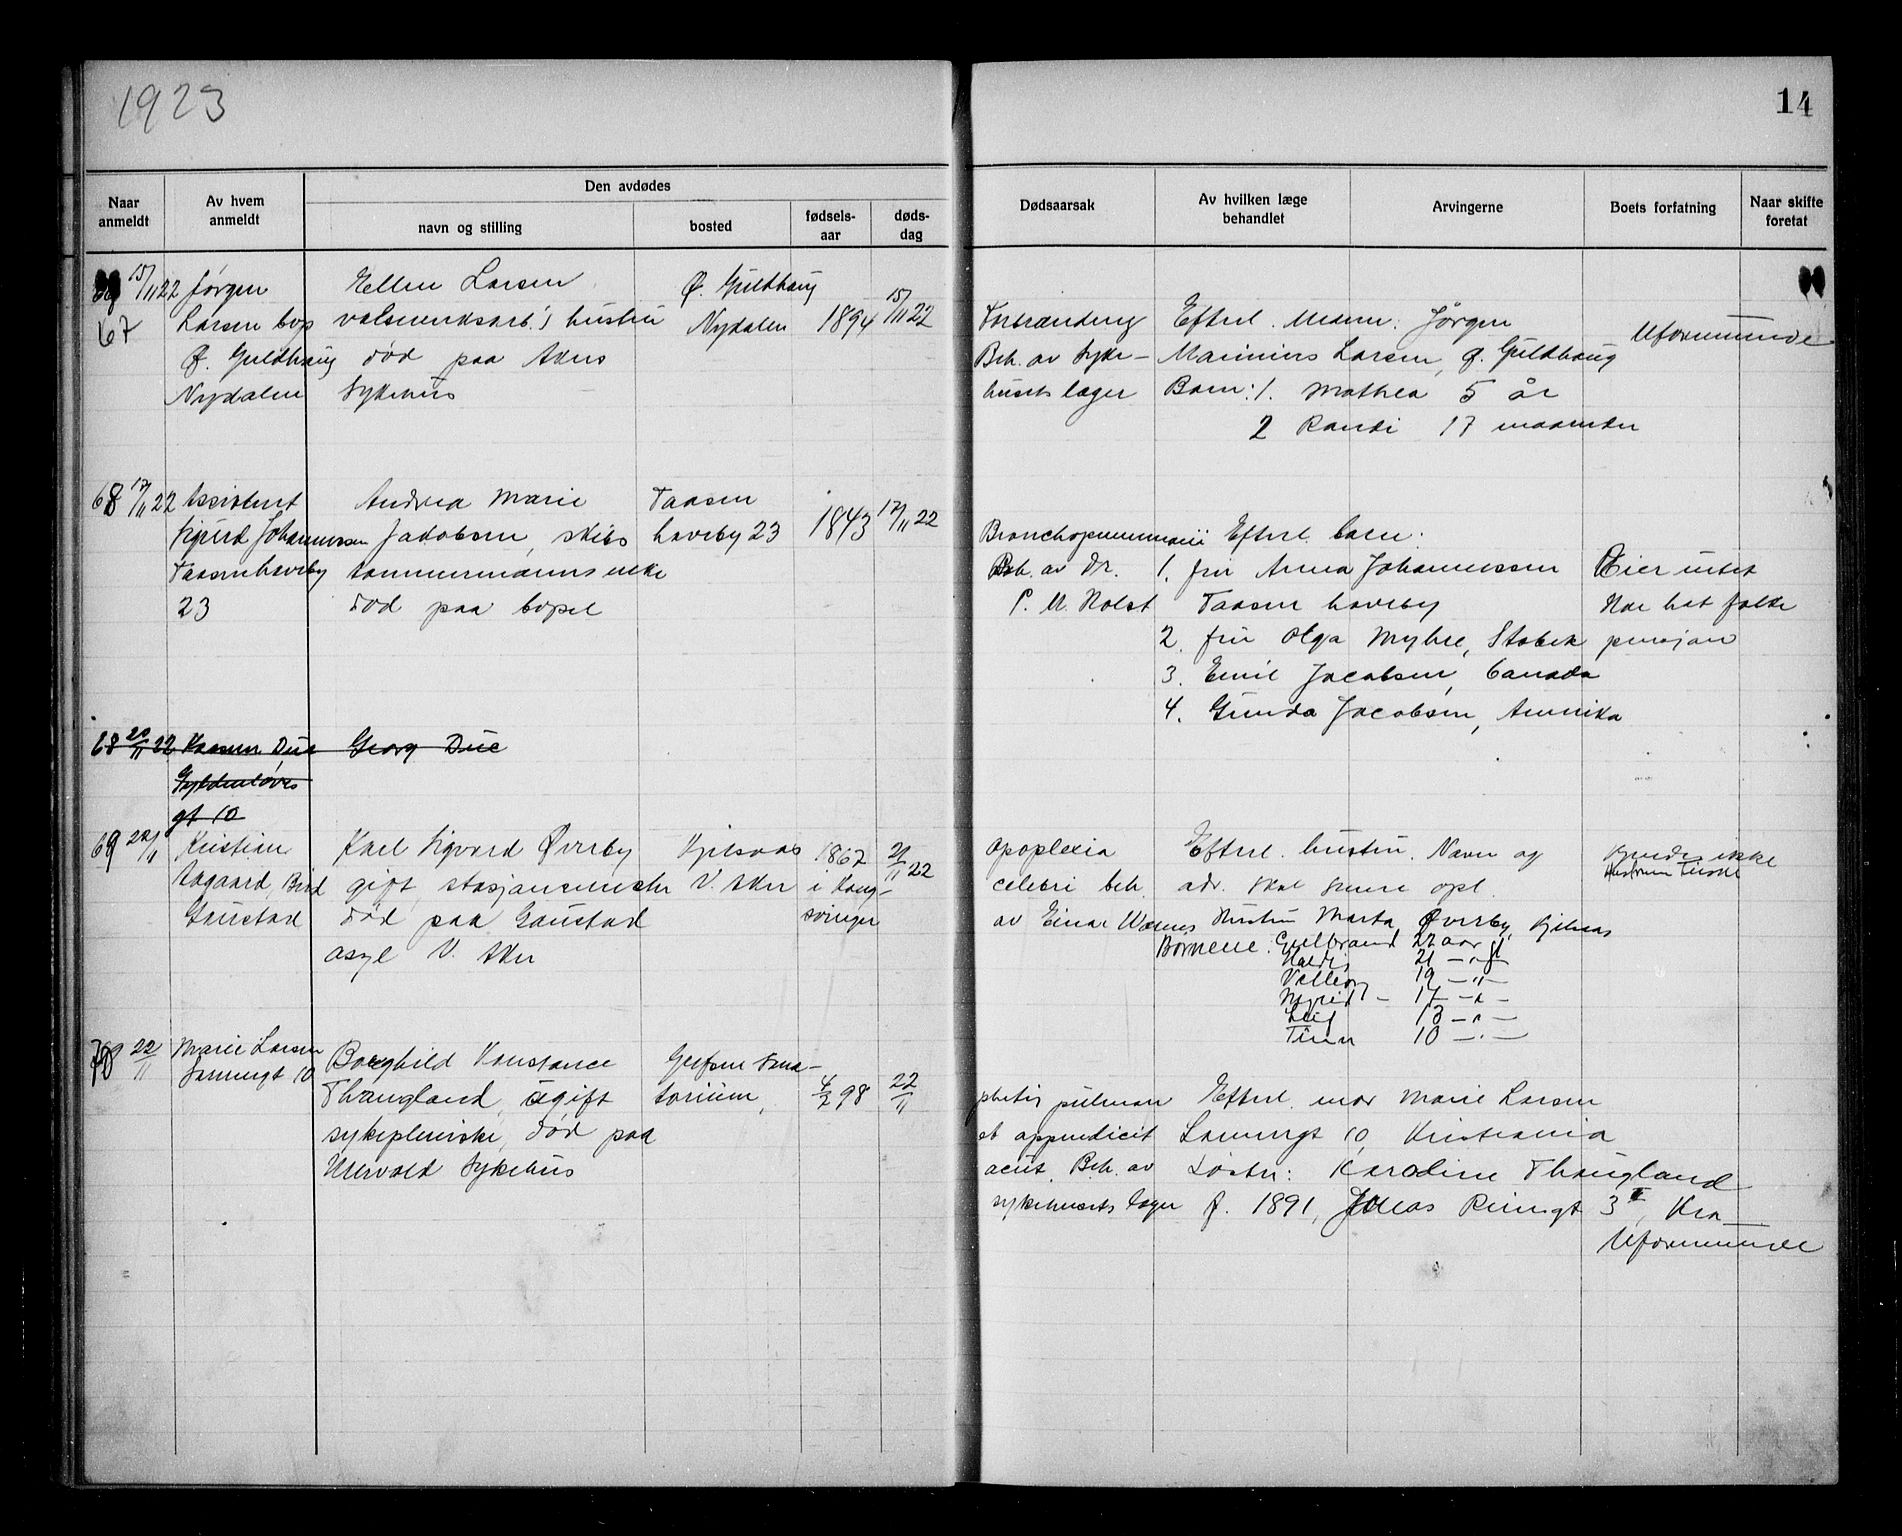 1923
14
Naar anmeldt
Av hvem anmeldt
Den avdødes
navn og stilling
bosted
fødsels-aar
døds-dag
Dødsaarsak
Av hvilken læge behandlet
Arvingerne
Boets forfatning
Naar skifte foretat
67 15/11 22 Jørgen Larsen bop Ø. Guldhaug Nydalen
Ellen Larsen
valseverksarb.'s hustru
død paa Akers
Sykehus
Ø. Guldhaug
Nydalen 1894 15/11 22
Forbrænding
Beh. av Syke-
husets læger
Efterl. Mann: Jørgen
Marinius Larsen, Ø. Guldhaug
Barn: 1. Mathea 5 år
2 Randi 17 maaneder
Uformuende
68 17/11 22 Assistent
Sigurd Johannessen
Taasenhaveby
23
Andrea Marie
Jakobsen, skibs
tømmermanns enke
død paa bopel
Taasen
haveby 23
1843 17/11 22
Bronchopneumoni
Beh. av Dr.
P. M. Holst
Efterl. barn:
1. fru Anna Johannessen
Taasen haveby
2. fru Olga Myhre, Stabek
3. Emil Jacobsen, Canada
4. Gunda Jacobsen, Amerika
Eier intet
Har hat folke
pensjon
68 20/11 22 Due
Gyldenløves
gt 10
Georg Due
69 22/11 Kristian
Aagaard, Best
Gaustad
Karl Sigvard Øverby
gift, stasjonsmester
død paa Gaustad
asyl V. Aker
Kjelsaas
V. Aker
1867
i Kong-
svinger
21/11 22
Apoplexia
celebri beh.
av Einar Wærnes
Efterl. hustru. Navn og
adr. skal senere opl.
Hustru Marta Øverby, Kjelsas
Børnene: Gulbrand 22 aar gl
Haldis 21 —"—
Valborg 19 —"—
Ingrid - 17 —"—
Leif 13 —"—
Tinn 10 —"—
kjendes ikke
70 22/11 Marie Larsen
10
Borghild Konstance
Thaugland, ugift
sykepleierske, død paa
Ullevold Sykehus
Grefsen Sana-
torium,
4/2 98 22/11
phtis pulmon
et appendicit
acut. Beh. av
sykehusets læger
Efterl. mor Marie Larsen
10, Kristiania
Søster: Karoline Thaugland
f. 1891, Jonas Reinsgt 3 II, Kra
Uformuende